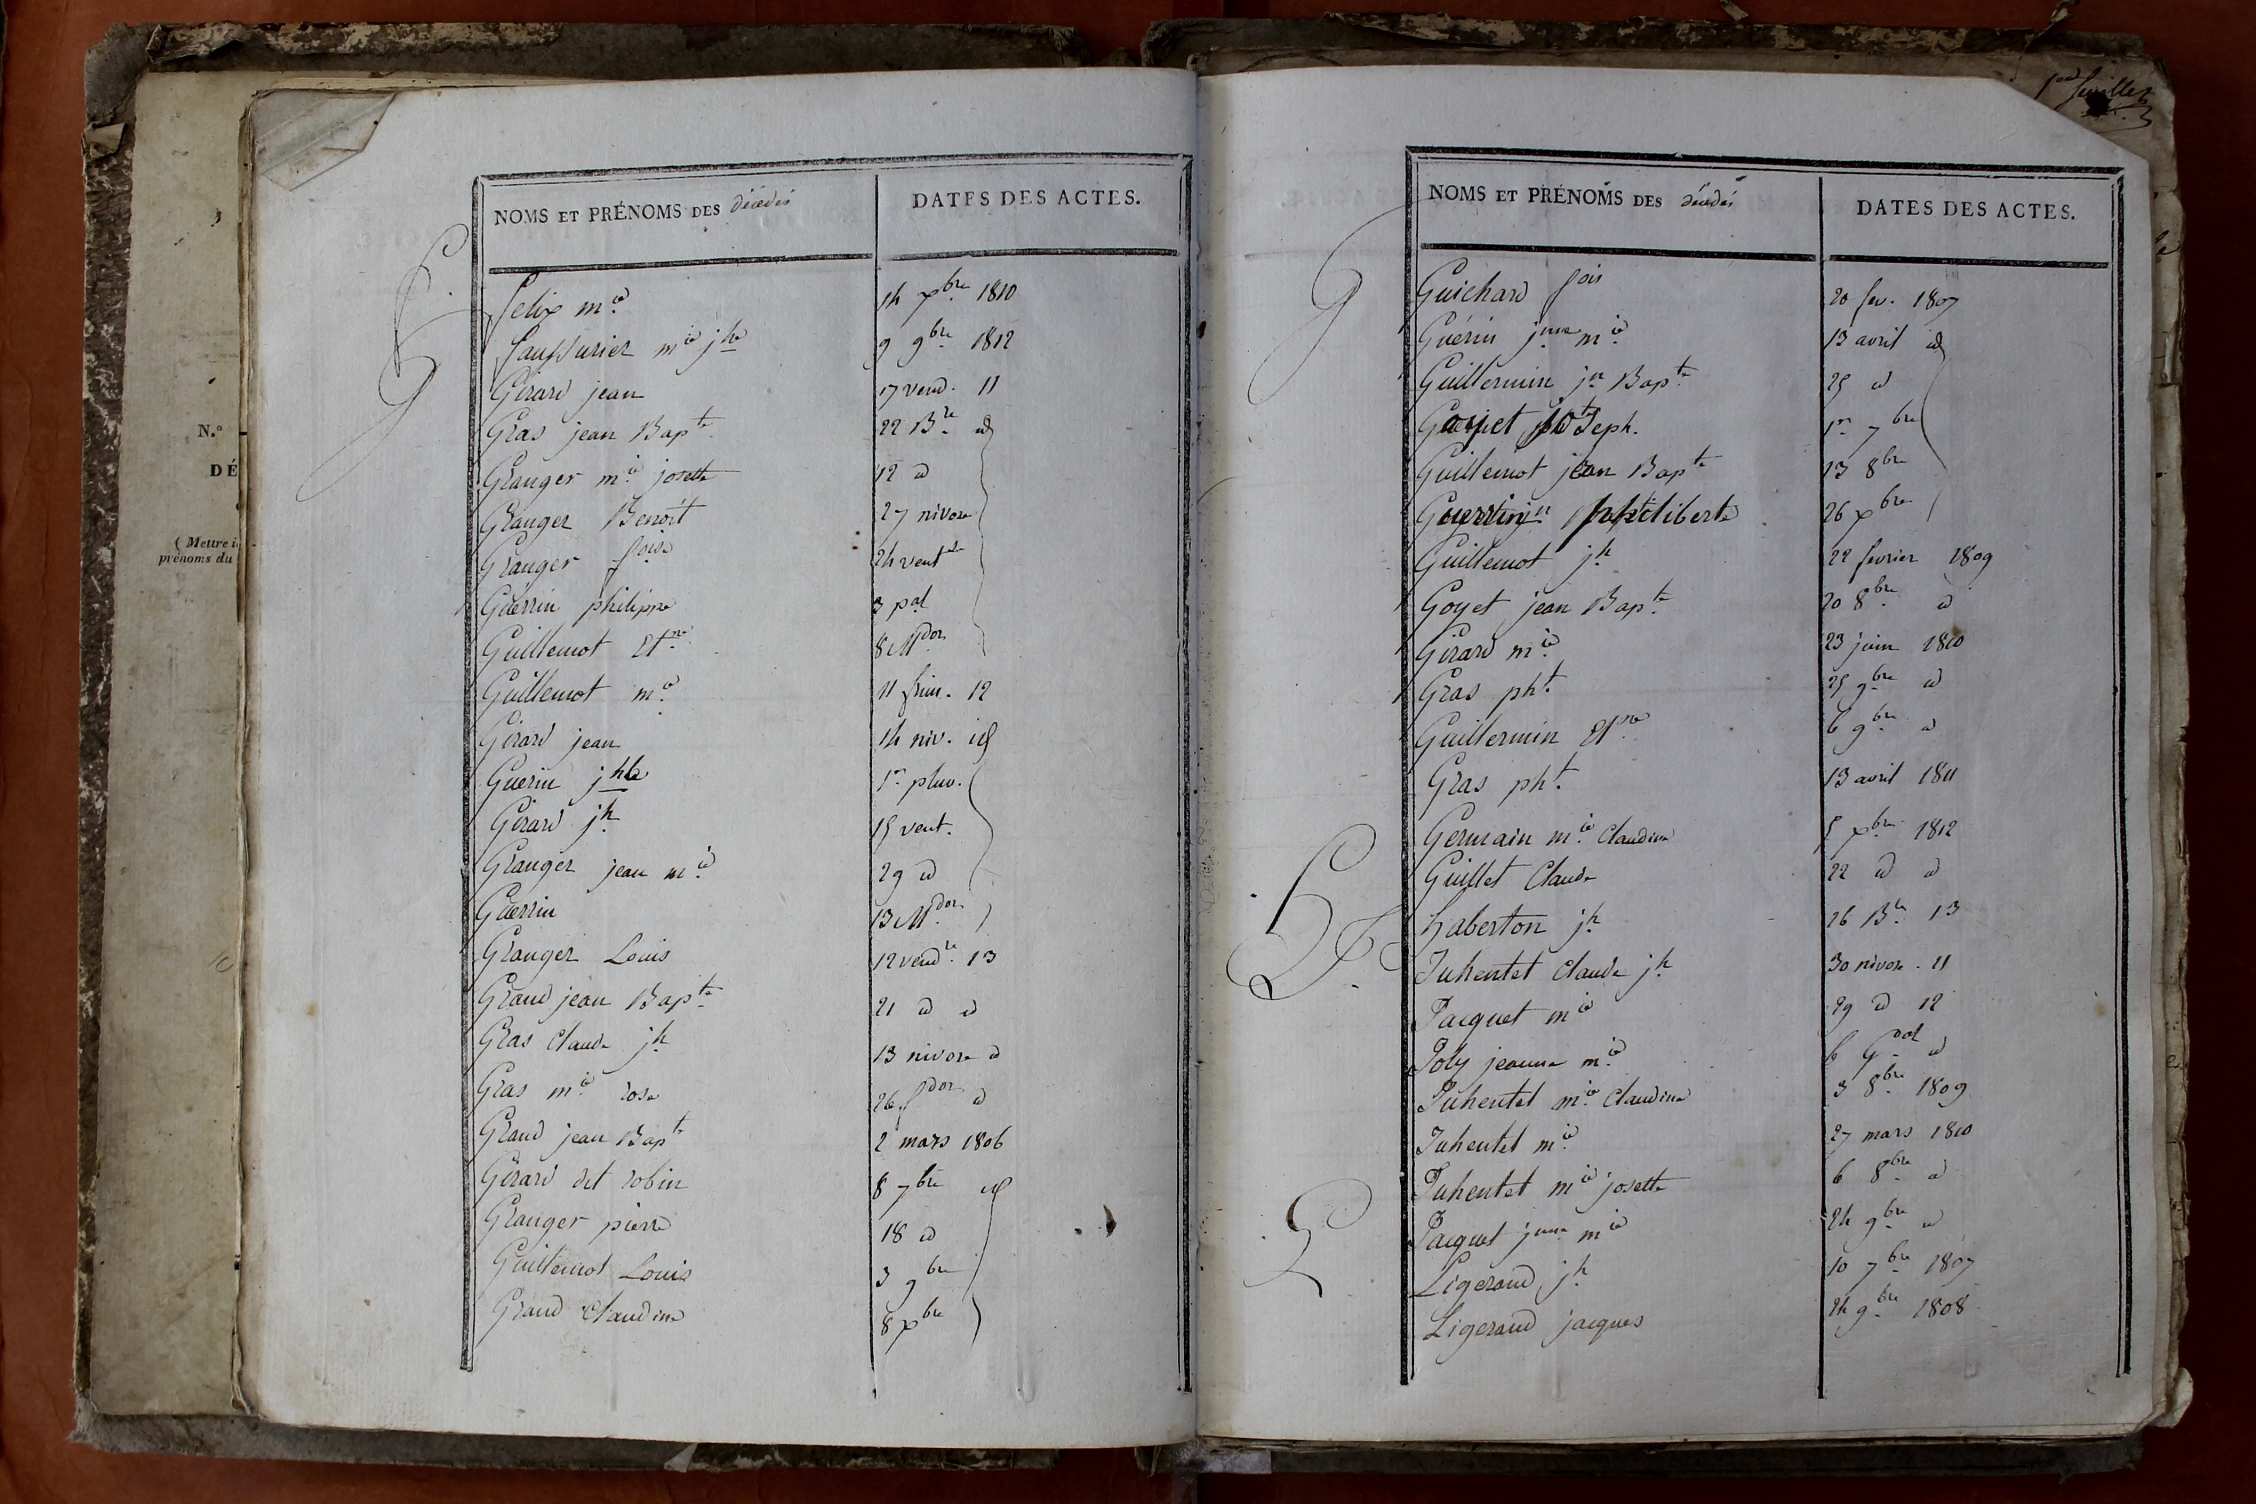 N.°
DÉ
( Mettre i
prénoms du
NOMS ET PRÉNOMS DES Décédés DATES DES ACTES.
F
felix m.ie 14 xbre 1810
faussurier mie jhe 9 9bre 1812
G
Girard jean 17 vend. 11
Gras jean Bapte 22 Bre id
Granger m.ie josette 12 id
Granger Benoit 27 nivose
Granger foise 24 vent se
Guerrin philippe 3 pal
Guillemot Etne 8 Mdor
Guillemot m.ie 11 frim. 12
Girard jean 14 niv. id
Guerin jhte 1er pluv.
Girard jh 15 vent.
Granger jean m.ie 29 id
Guerrin 13 Mdor
Granger Louis 12 vendre 13
Grand jean Bapte 21 id id
Gras Claude jh 13 nivose id
Gras m.ie rose 26 fdor id
Grand jean Bapte 2 mars 1806
Girard dit robin 8 7bre id
Granger pierre 18 id
Guillemot Louis 3 9bre
Grand Claudine 8 xbre
1er feuillet
NOMS ET PRÉNOMS DES décédés DATES DES ACTES.
G
Guichard fois 20 fev. 1807
Guérin jnne m.ie 13 avril id
Guillermin jn Bapte 25 id
Goyet joseph. 1er 7bre
Guillemot jean Bapte 13 8bre
philiberte 26 xbre
Guillemot jh 22 fevrier 1809
Goyet jean Bapte 20 8bre id
Girard m.ie 23 juin 1810
Gras pht. 25 9bre id
Guillermin Etne 6 9bre id
Gras pht. 13 avril 1811
Germain m.ie Claudine 5 xbre 1812
Guillet Claude 22 id id
h
haberton jh 26 Bre 13
J
Juhentet Claude jh 30 nivose. 11
Jacquet mie 29 id 12
Joly jeanne m.ie 6 Gal id
Juhentet m.ie Claudine 3 8bre 1809
Juhentet m.ie 27 mars 1810
Juhentet mie josette 6 8bre id
Jacquet jnne mie 24 9bre id
L
Ligeraud jh 10 7bre 1807
Ligeraud jacques 24 9bre 1808